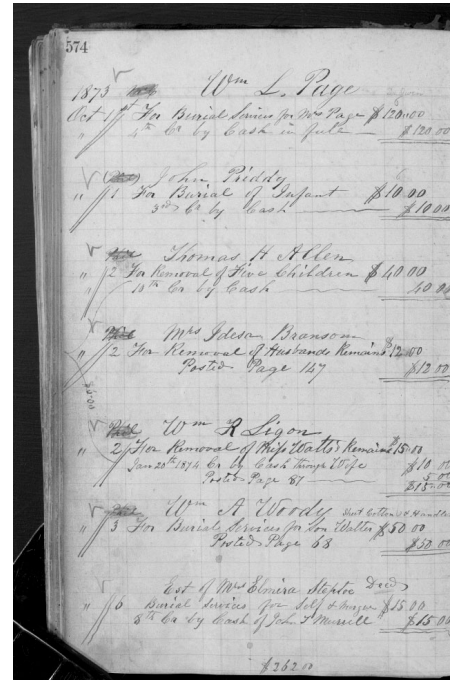 574
1873 Wm L. Page
Oct 1st For Burial Services for Mrs Page $120.00
" 4th Cr by Cash in full $120.00
John Priddy
" 1 For Burial of Infant $10.00
3rd Cr by Cash $10.00
Thomas H Allen
" 2 For Removal of Five Children $40.00
" 10th Cr by Cash 40.00
Mrs Idesa Bransom
" 2 For Removal of Husbands Remains $12.00
Posted Page 147 $12.00
Wm R Ligon
" 2 For Removal of Watts Remains $15.00
Jan 20th 1874 Cr by Cash through Wife $10.00
Posted Page 87 5.00
$15.00
Wm A Woody
" 3 For Burial Services for Son Walter $50.00
Posted Page 68 $50.00
Est of Mrs Elmira Steptoe Decd
" 6 Burial Services for Self $15.00
8th Cr by Cash of John T Murrill $15.00
$362.00